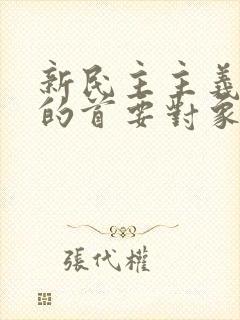 新民主主義
的首要對象
張代權